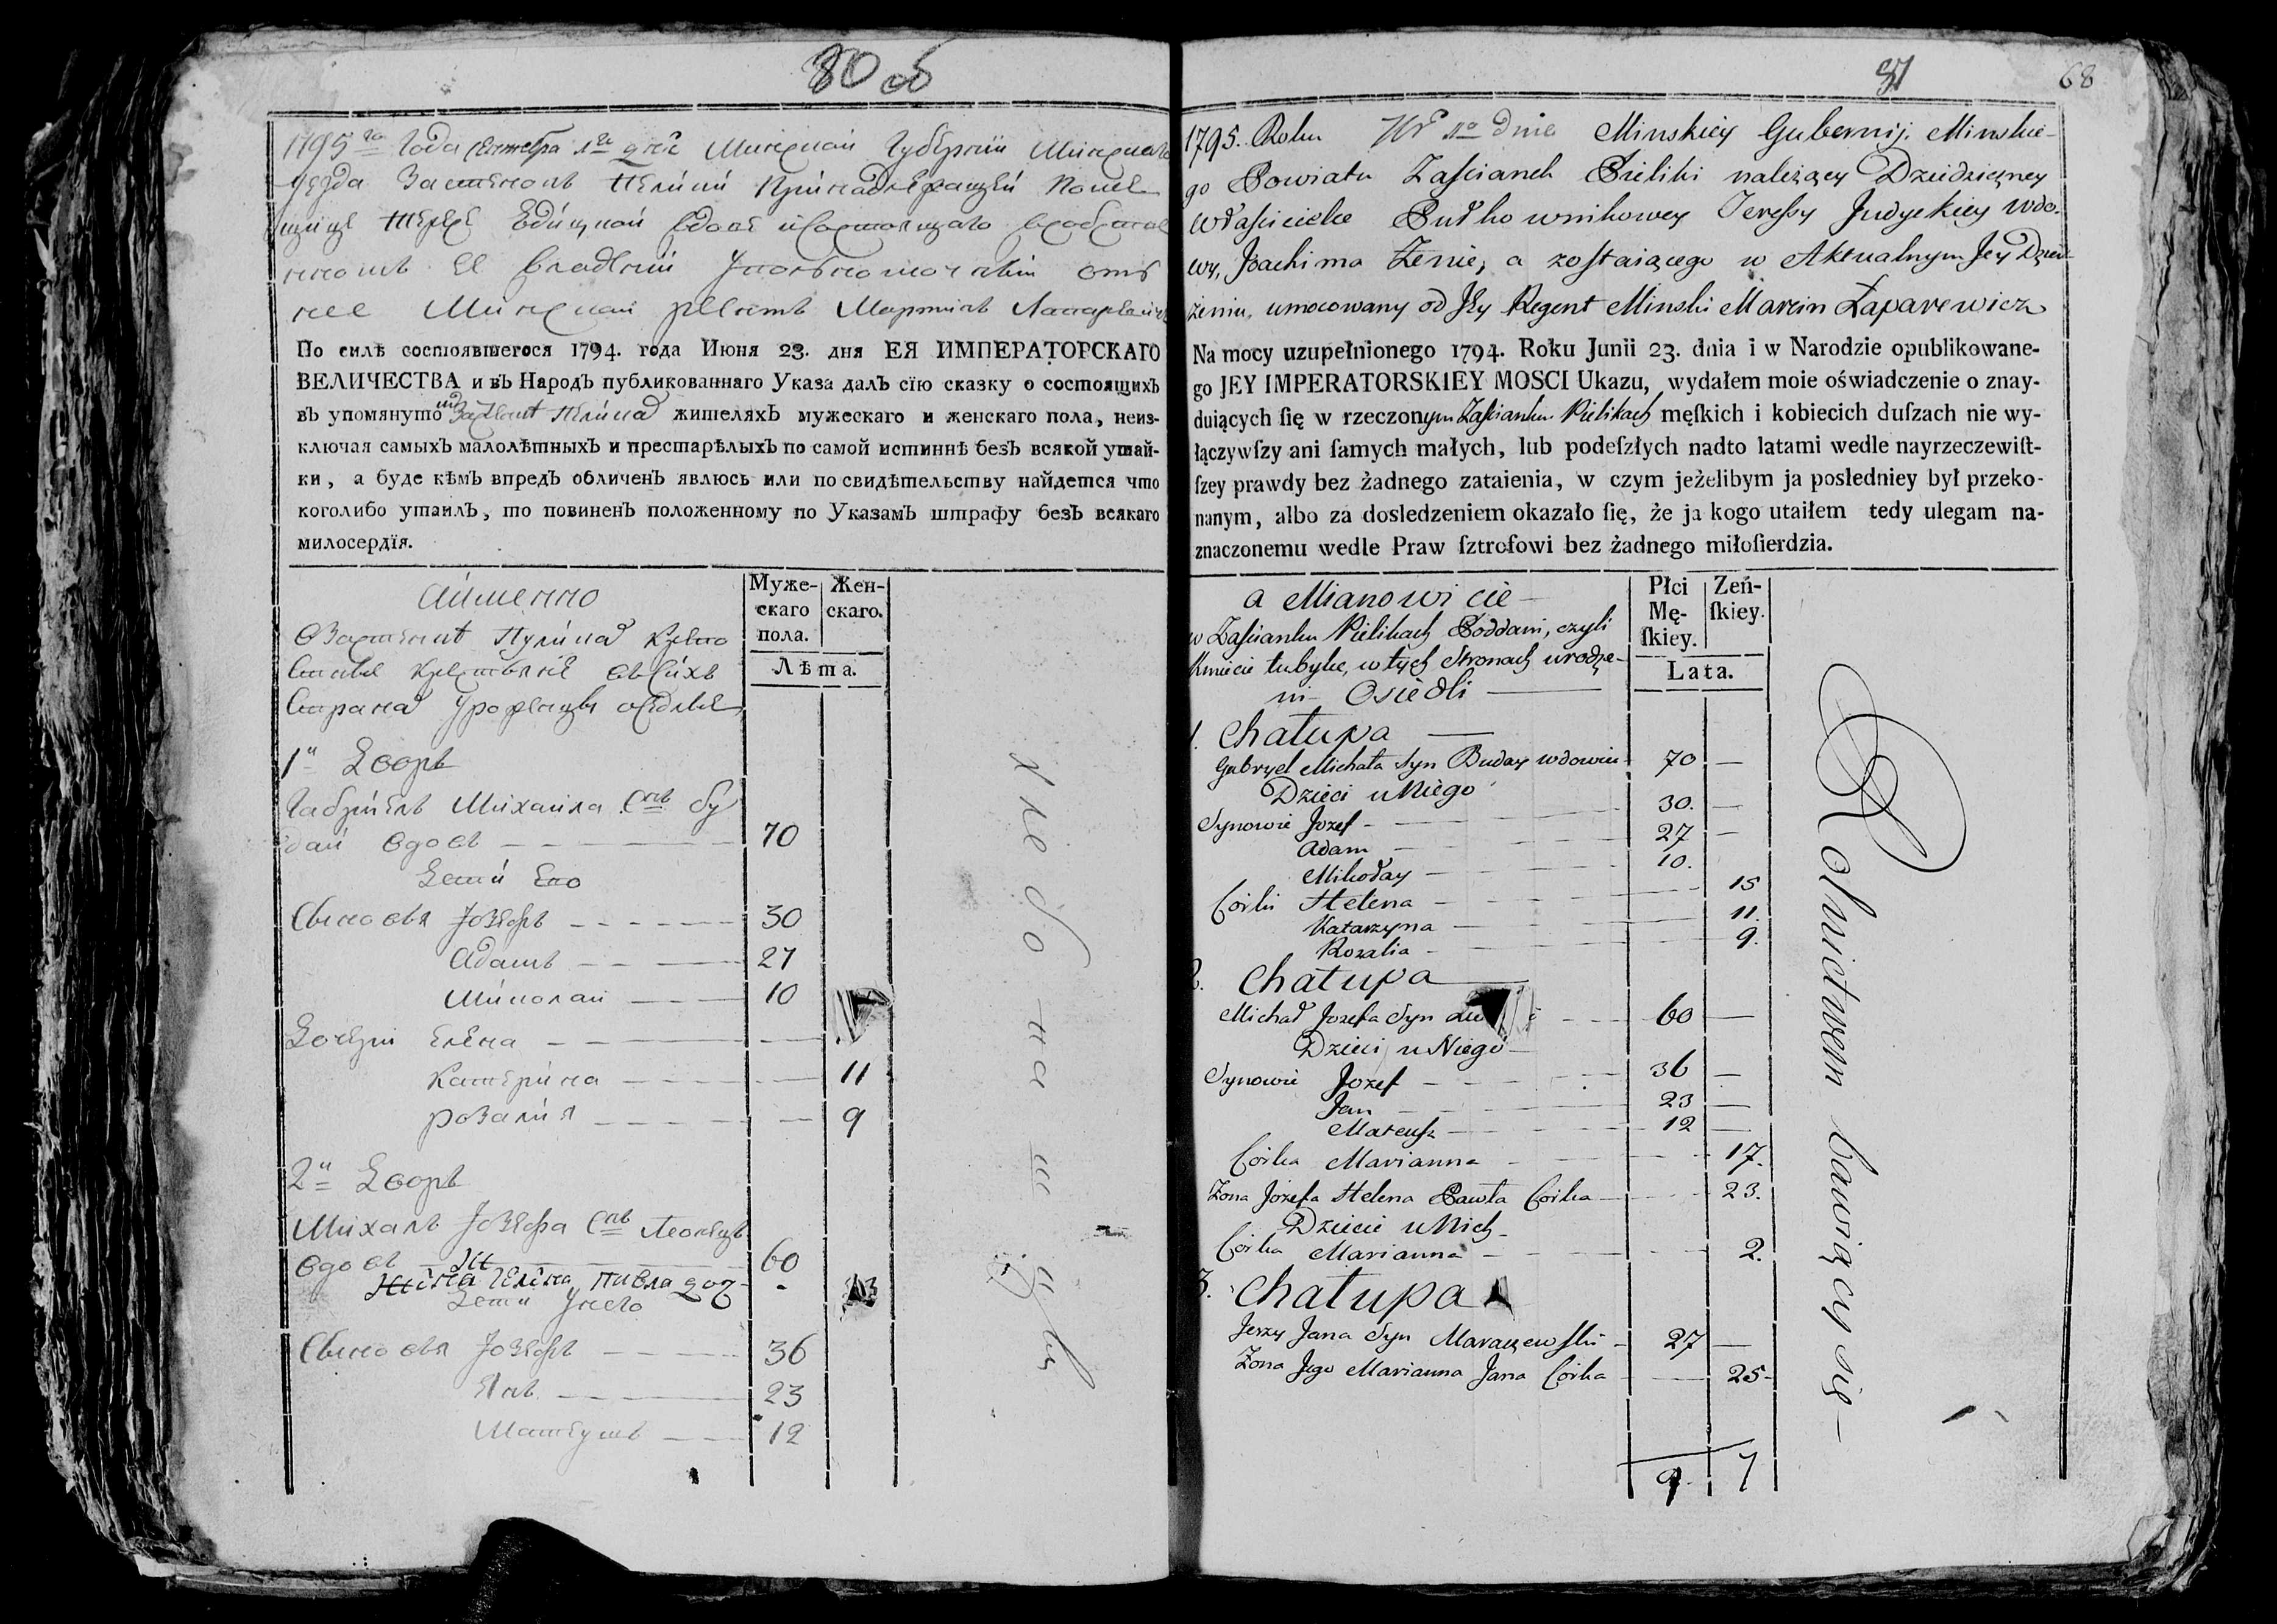 80 об
1795 го Года сентебра 1го дня Минской Губернии Минскаго
уезда Застенокъ Пелики Принадлежащей Поме
щице Терезе Юдицкой вдове и состоящаго
ея владении Уполномочений отъ
нее Минской регентъ Мартинъ Лапаревичъ
По силѣ состоявшегося 1794. года Июня 23. дня ЕЯ ИМПЕРАТОРСКАГО
ВЕЛИЧЕСТВА и въ Народъ публикованнаго Указа далъ сїю сказку о состоящихъ
въ упомянуто жителяхъ мужескаго и женскаго пола, неиз-
ключая самыхъ малолѣтныхъ и престарѣлыхъ по самой истиннѣ безъ всякой утай-
ки, а буде кѣмъ впредъ обличенъ явлюсь или по свидѣтельству найдется что
коголибо утаилъ, то повиненъ положенному по Указамъ штрафу безъ всякаго
милосердїя.
Аименно
Муже- Жен-
скаго скаго.
пола.
Лѣта.
крестьяне
Странахъ
1й Дворъ
Габриель Михайла Снъ Бу
дай вдовъ 70
Дети Его
Сыновя Іозефъ 30
Адамъ 27
Миколай 10
Дочери Елена
Катерина 11
Розалия 9
2й Дворъ
Михалъ Іозефа Снъ
вдовъ 60
Павла доч.
Дети Унего
Сыновя Іозефъ 36
Янъ 23
Матеушъ 12
хлебопашцы
81 68
1795. Roku 1o Dnie Minskiey Gubernij. Minskie-
go Powiatu Zaſcianek Pieliki należący Dziedziczney
Właſcicielce Pułkownikowey Tereſsy Judyckiey wdo-
wy, Joachima Żenie, a zoſtaiącego w Aktualnym Jey Dzier-
żeniu, umocowany od Jey Regent Minski Marcin Łaparewicz
Na mocy uzupełnionego 1794. Roku Junii 23. dnia i w Narodzie opublikowane-
go JEY IMPERATORSKIEY MOSCI Ukazu, wydałem moie oświadczenie o znay-
duiących ſię w rzeczonym Zaſcianku Pielikach męſkich i kobiecich duſzach nie wy-
łączywſzy ani ſamych małych, lub podeſzłych nadto latami wedle nayrzeczewiſt-
ſzey prawdy bez żadnego zataienia, w czym jeżelibym ja posledniey był przeko-
nanym, albo za dosledzeniem okazało ſię, że ja kogo utaiłem tedy ulegam na-
znaczonemu wedle Praw ſztrofowi bez żadnego miłoſierdzia.
a Mianowicie
Płci Zeń-
Mę- ſkiey.
ſkiey.
Lata.
w Zaſcianku Pielikach Poddani, czyli
Kmiecie tubylce, w tych Stronach urodze-
ni Osiedli
1. Chatupa
Gabryel Michała Syn Buday wdowiec 70 —
Dzieci u Niego
Synowie Jozef 30. —
Adam 27 —
Mikołay 10.
Corki Helena 15
Katarzyna 11.
Rozalia 9.
2. Chatupa
Michał Jozefa Syn 60 —
Dzieci u Niego
Synowie Jozef 36 —
Jan 23 —
Mateuſz 12 —
Corka Marianna 17.
Zona Jozefa Helena Pawła Corka 23.
Dziecie u Nich
Corka Marianna 2.
3. Chatupa
Jerzy Jana Syn Maraczewſki 27 —
Zona Jego Marianna Jana Corka 25-
9 7
Rolnictwem bawiący się —